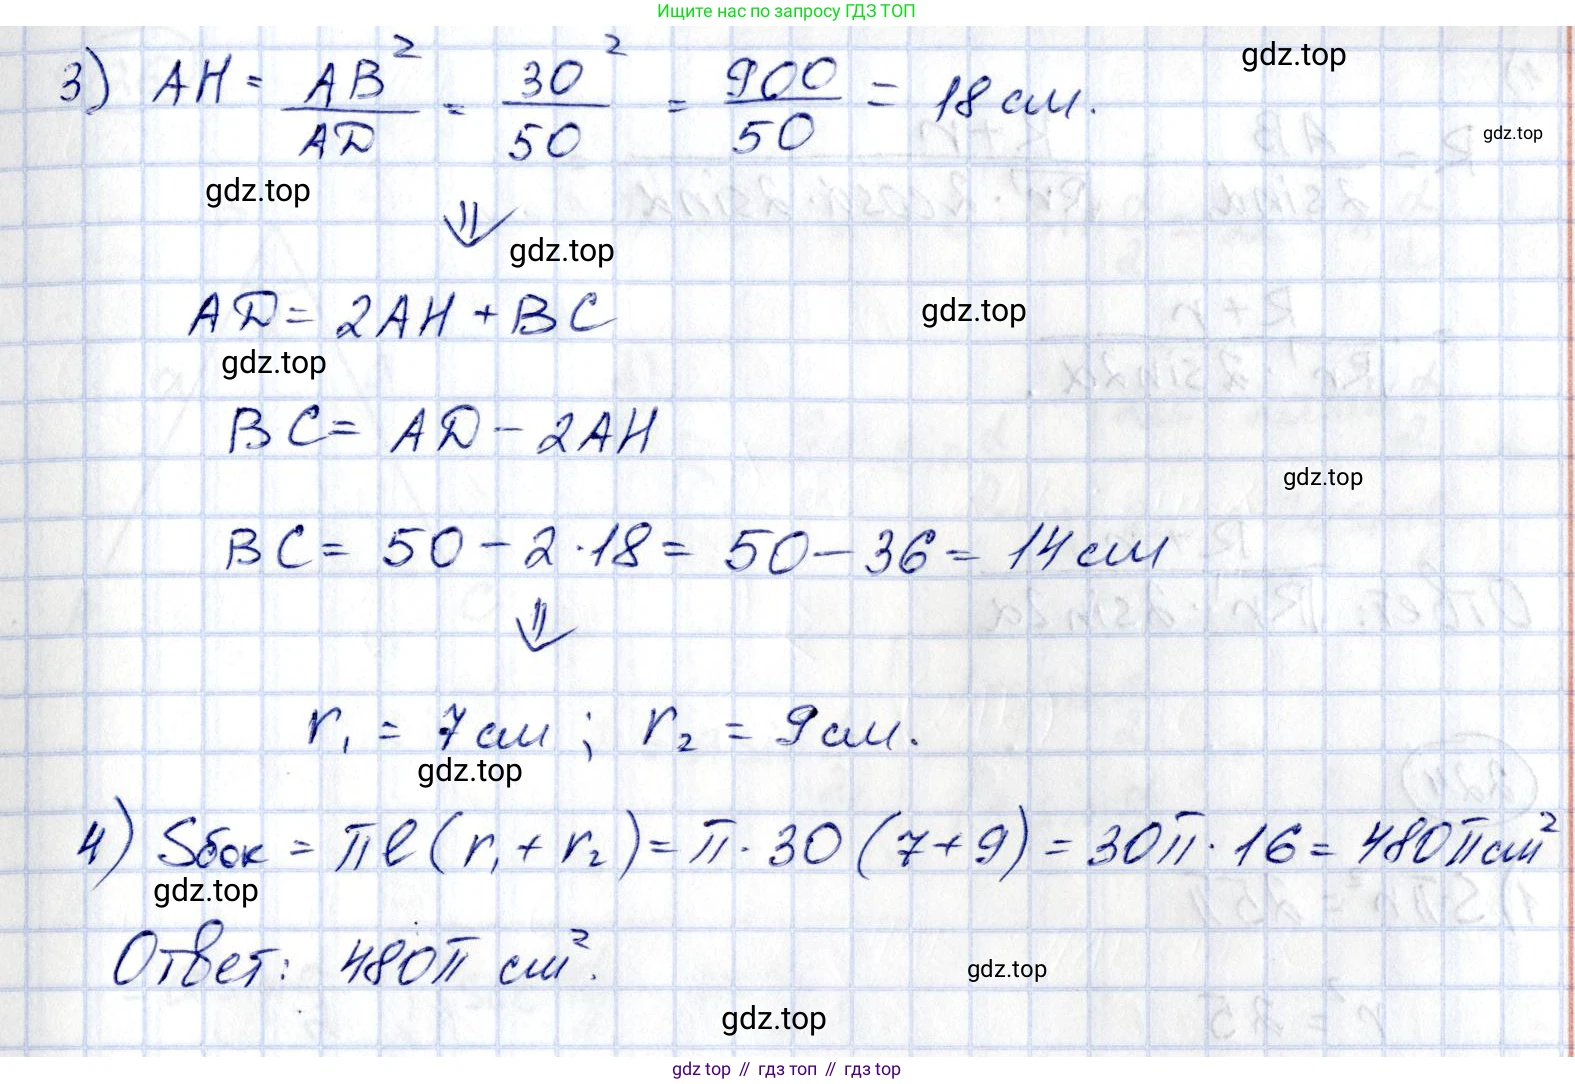 Ищите нас по запросу ГДЗ ТОП
3) AH = AB² / AD = 30² / 50 = 900 / 50 = 18 см.
gdz.top
gdz.top
gdz.top
⇓
gdz.top
AD = 2AH + BC
gdz.top
gdz.top
BC = AD - 2AH
gdz.top
BC = 50 - 2·18 = 50 - 36 = 14 см
⇓
r₁ = 7 см ; r₂ = 9 см.
gdz.top
4) Sбок = πl(r₁ + r₂) = π · 30 (7+9) = 30π · 16 = 480π см²
gdz.top
Ответ: 480π см².
gdz.top
gdz.top
gdz.top // гдз топ // гдз top